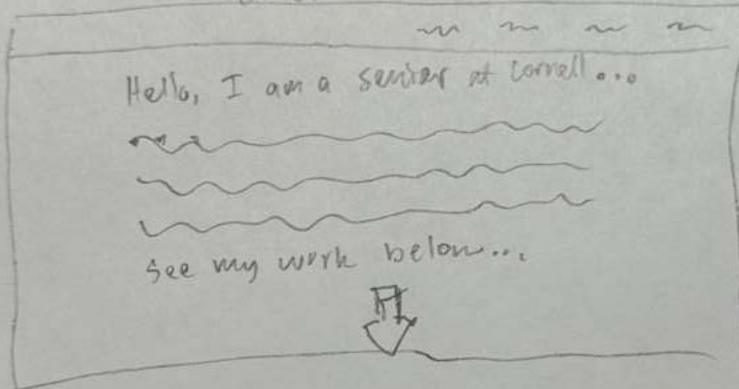 Hello, I am a senior at Cornell...
see my work below...